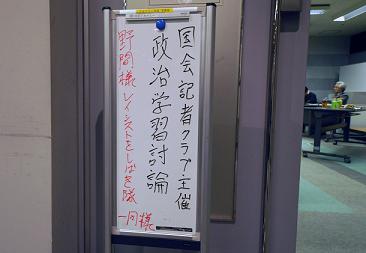 国会記者クラブ主催
政治学習討論
野間様レイシストをしばき隊一同様